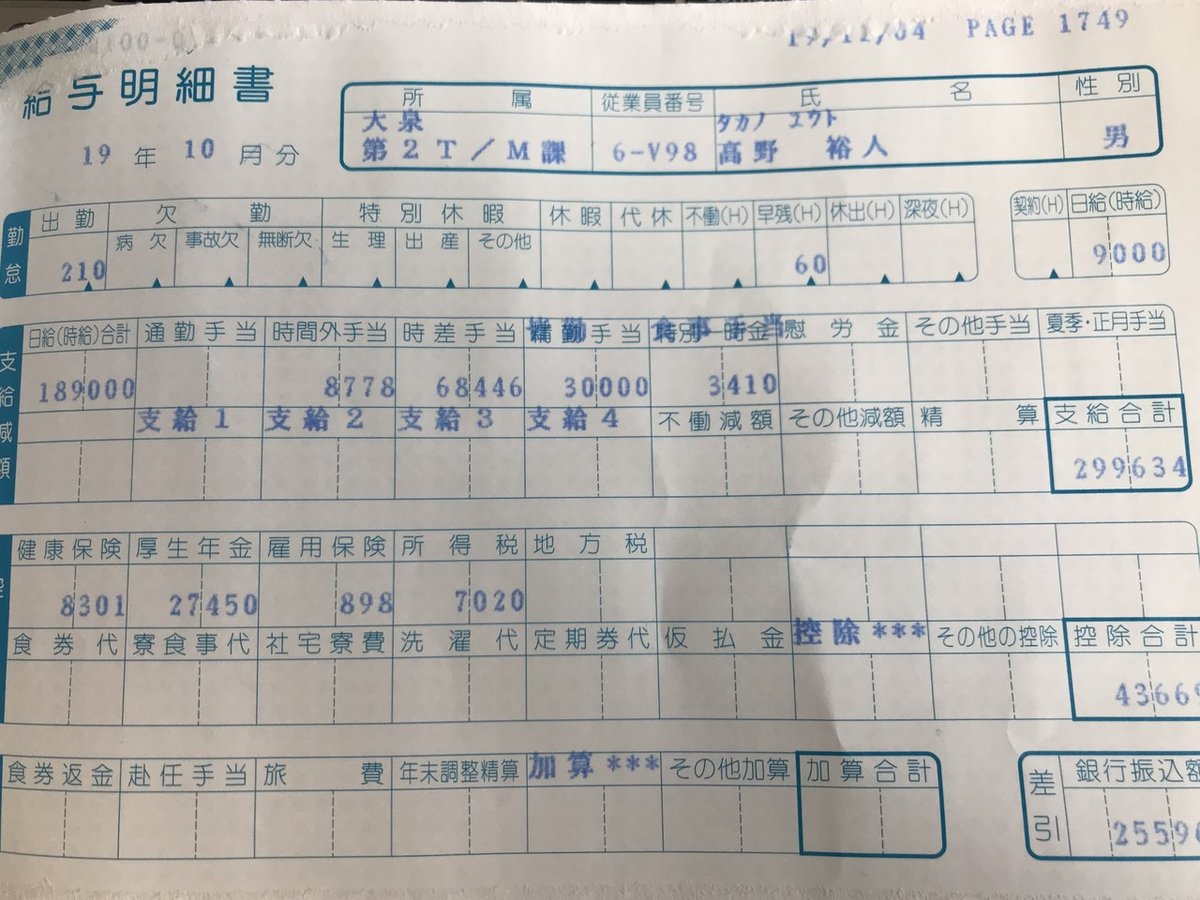 19/11/04 PAGE 1749
給与明細書
19年10月分
所属 従業員番号 氏名 性別
大泉 タカノ ユウト
第2T/M課 6-V98 高野 裕人 男
勤怠
出勤 欠勤 特別休暇 休暇 代休 不働(H) 早残(H) 休出(H) 深夜(H) 契約(H) 日給(時給)
病欠 事故欠 無断欠 生理 出産 その他
210 60 9000
支給減額
日給(時給)合計 通勤手当 時間外手当 時差手当 精勤手当 慰労金 その他手当 夏季・正月手当
189000 8778 68446 30000 3410
支給1 支給2 支給3 支給4 不働減額 その他減額 精算 支給合計
299634
健康保険 厚生年金 雇用保険 所得税 地方税
8301 27450 898 7020
食券代 寮食事代 社宅寮費 洗濯代 定期券代 仮払金 控除*** その他の控除 控除合計
43669
食券返金 赴任手当 旅費 年末調整精算 加算*** その他加算 加算合計 差引 銀行振込額
2559